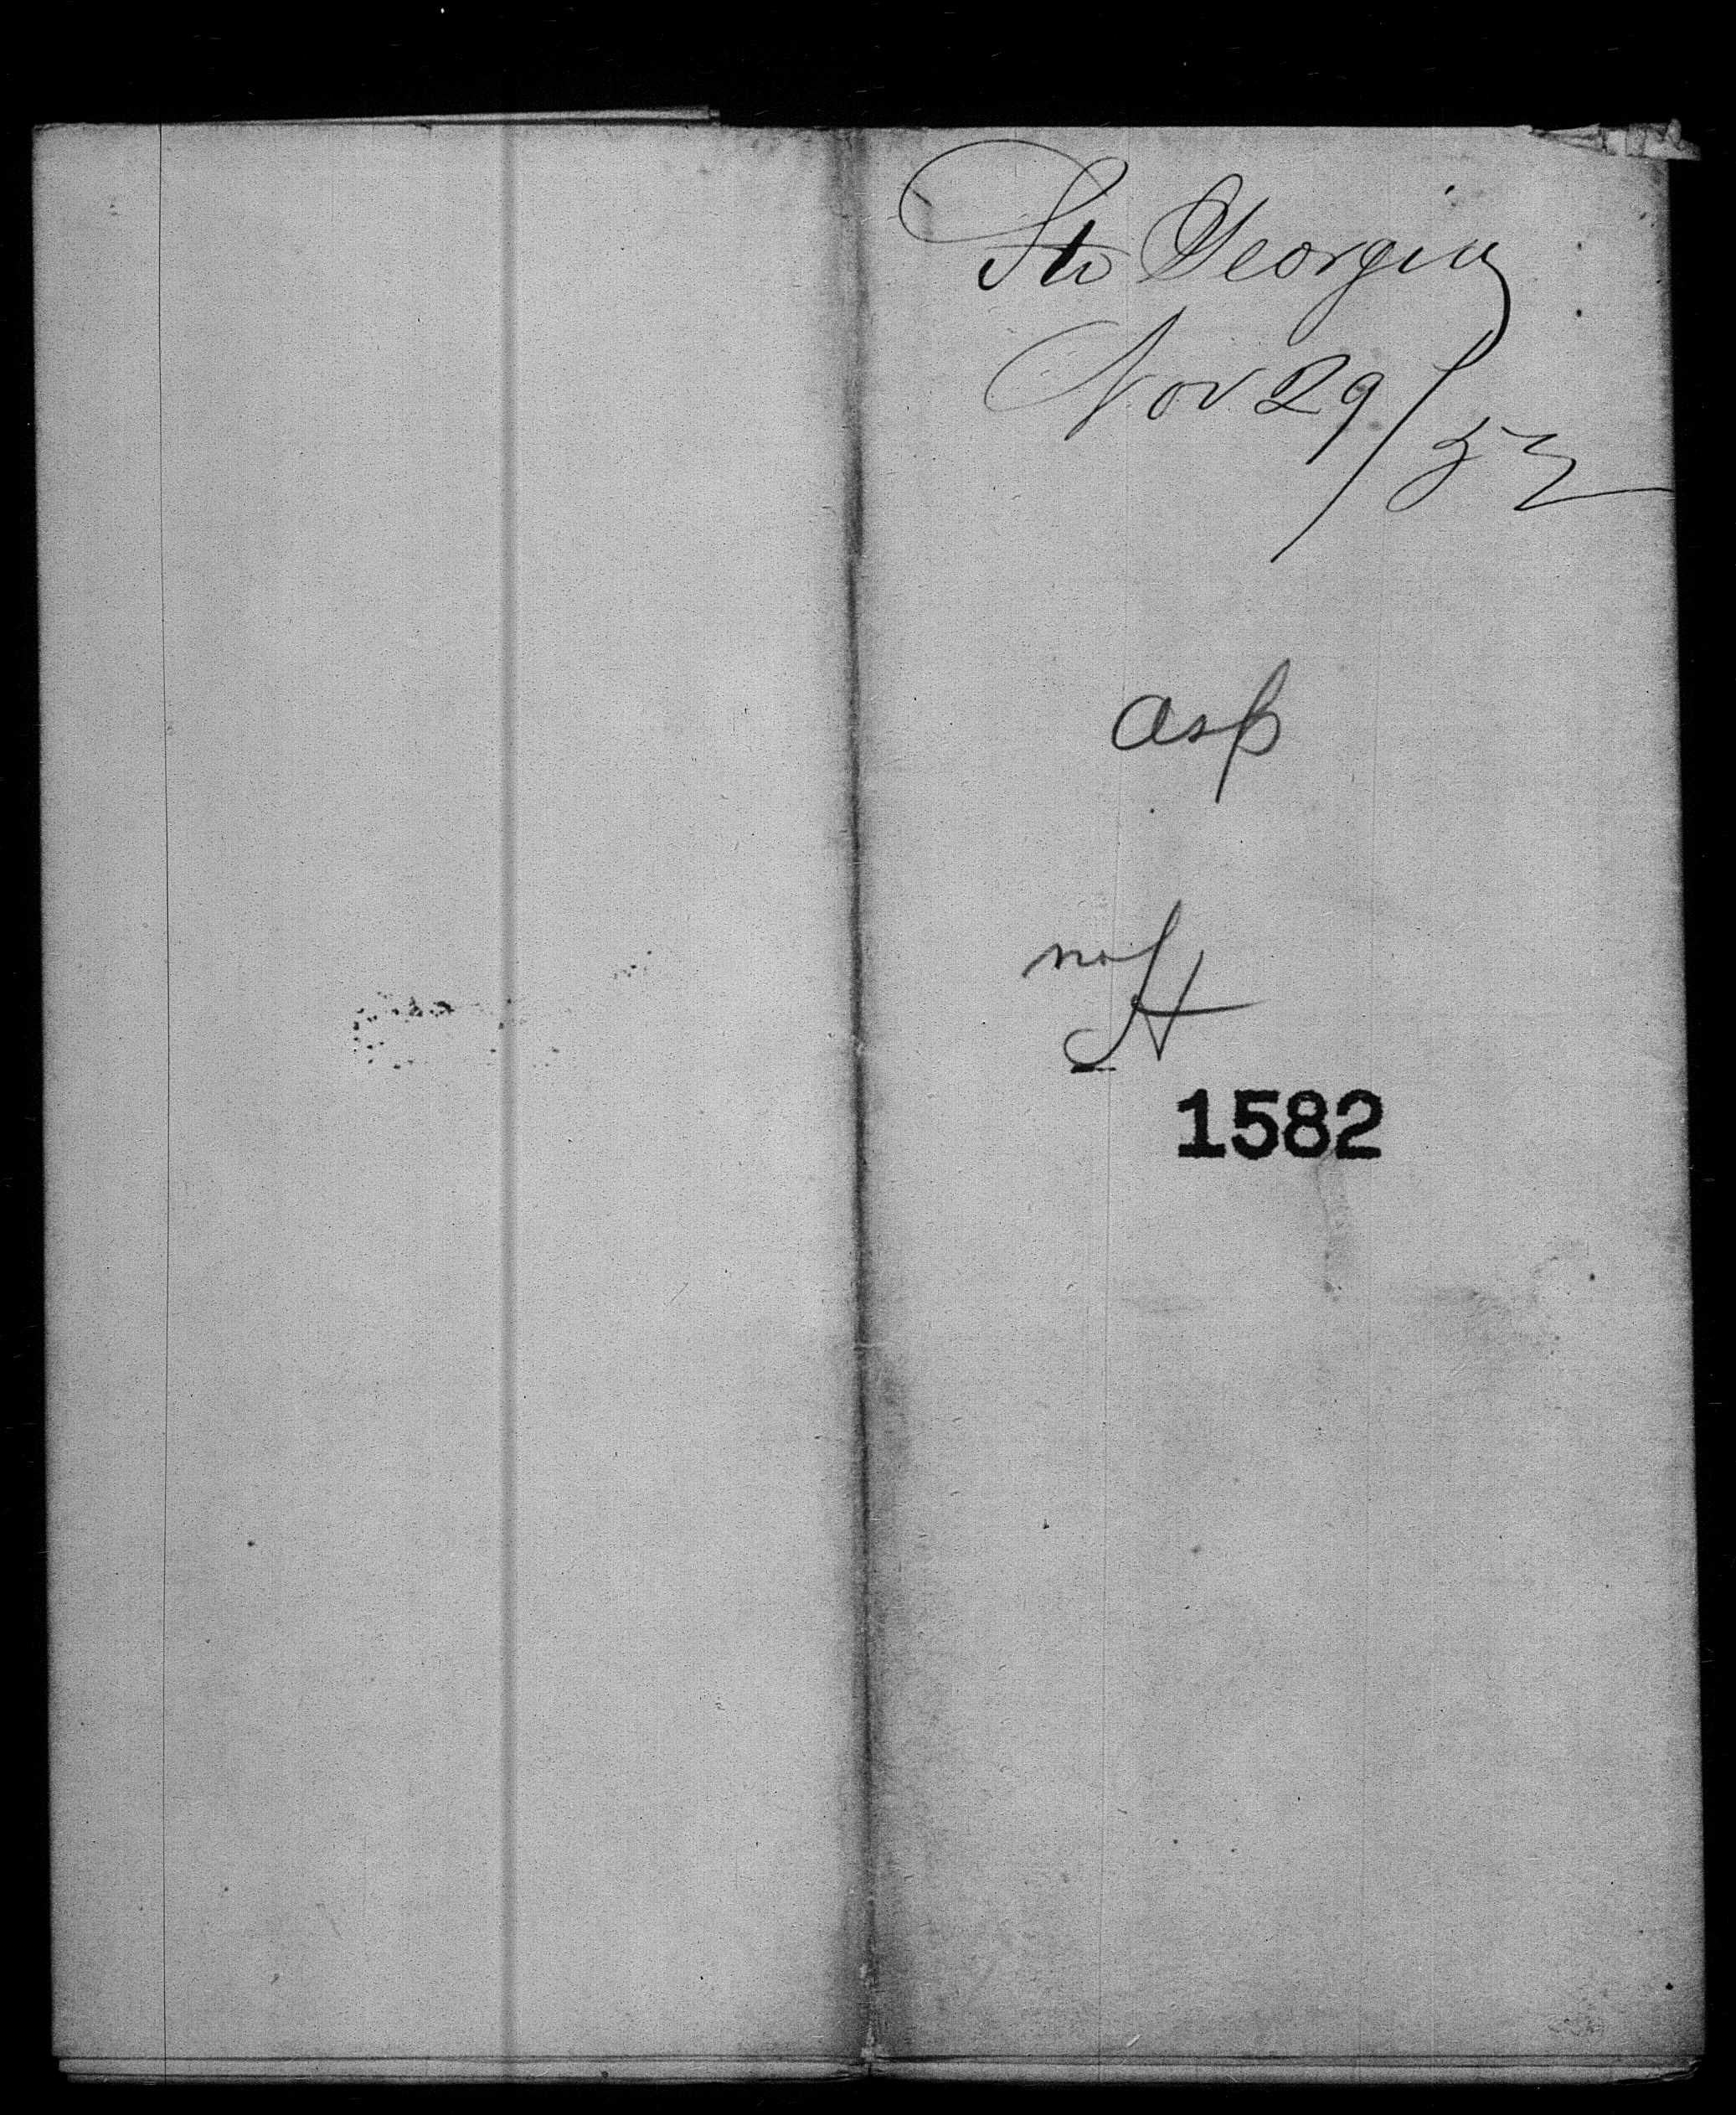 Str Georgia
Nov 29/52
asp
no
H
1582